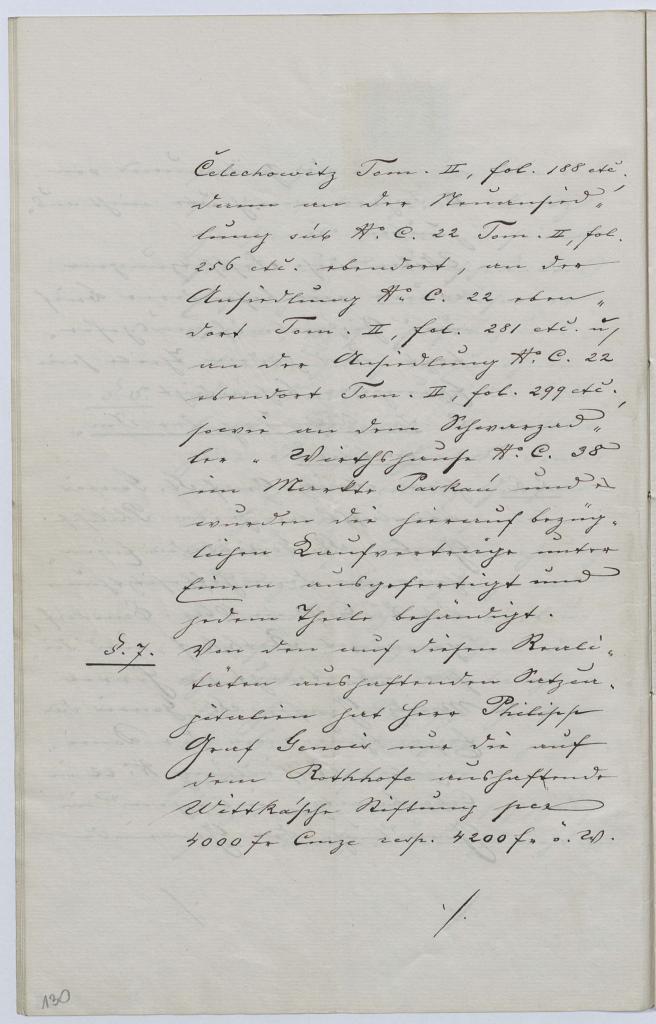 Čelechowitz Tom. II, fol. 188 etc.
dann an der Neuansied„
lung sub No. C. 22 Tom. II, fol.
256 etc. ebendort, an der
Ansiedlung No. C. 22 eben„
dort Tom. II, fol. 281 etc. u,
an der Ansiedlung No. C. 22
ebendort Tom. II, fol. 299 etc.,
sowie an dem Schwarzad„
ler „ Wirthshause No. C. 38
im Markte Paskau und es
wurden die hierauf bezüg„
lichen Kaufverträge unter
Einem ausgefertigt und
jedem Theile behändigt.
§. 7. Von den auf diesen Reali„
täten aushaftenden Satzca„
pitalien hat Herr Philipp
Graf Genois nur die auf
dem Rothhofe aushaftende
Wittka'sche Stiftung per
4000 fr Cmze resp. 4200 fr ö. W.
./.
130